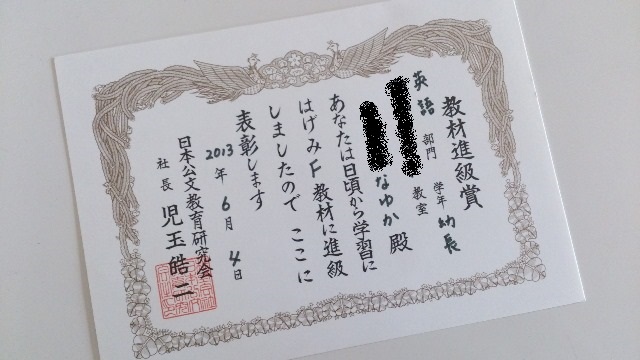 教材進級賞
英語 部門 学年 幼長
教室
なゆか 殿
あなたは日頃から学習に
はげみF教材に進級
しましたので ここに
表彰します
2013年6月4日
日本公文教育研究会
社長 児玉皓二